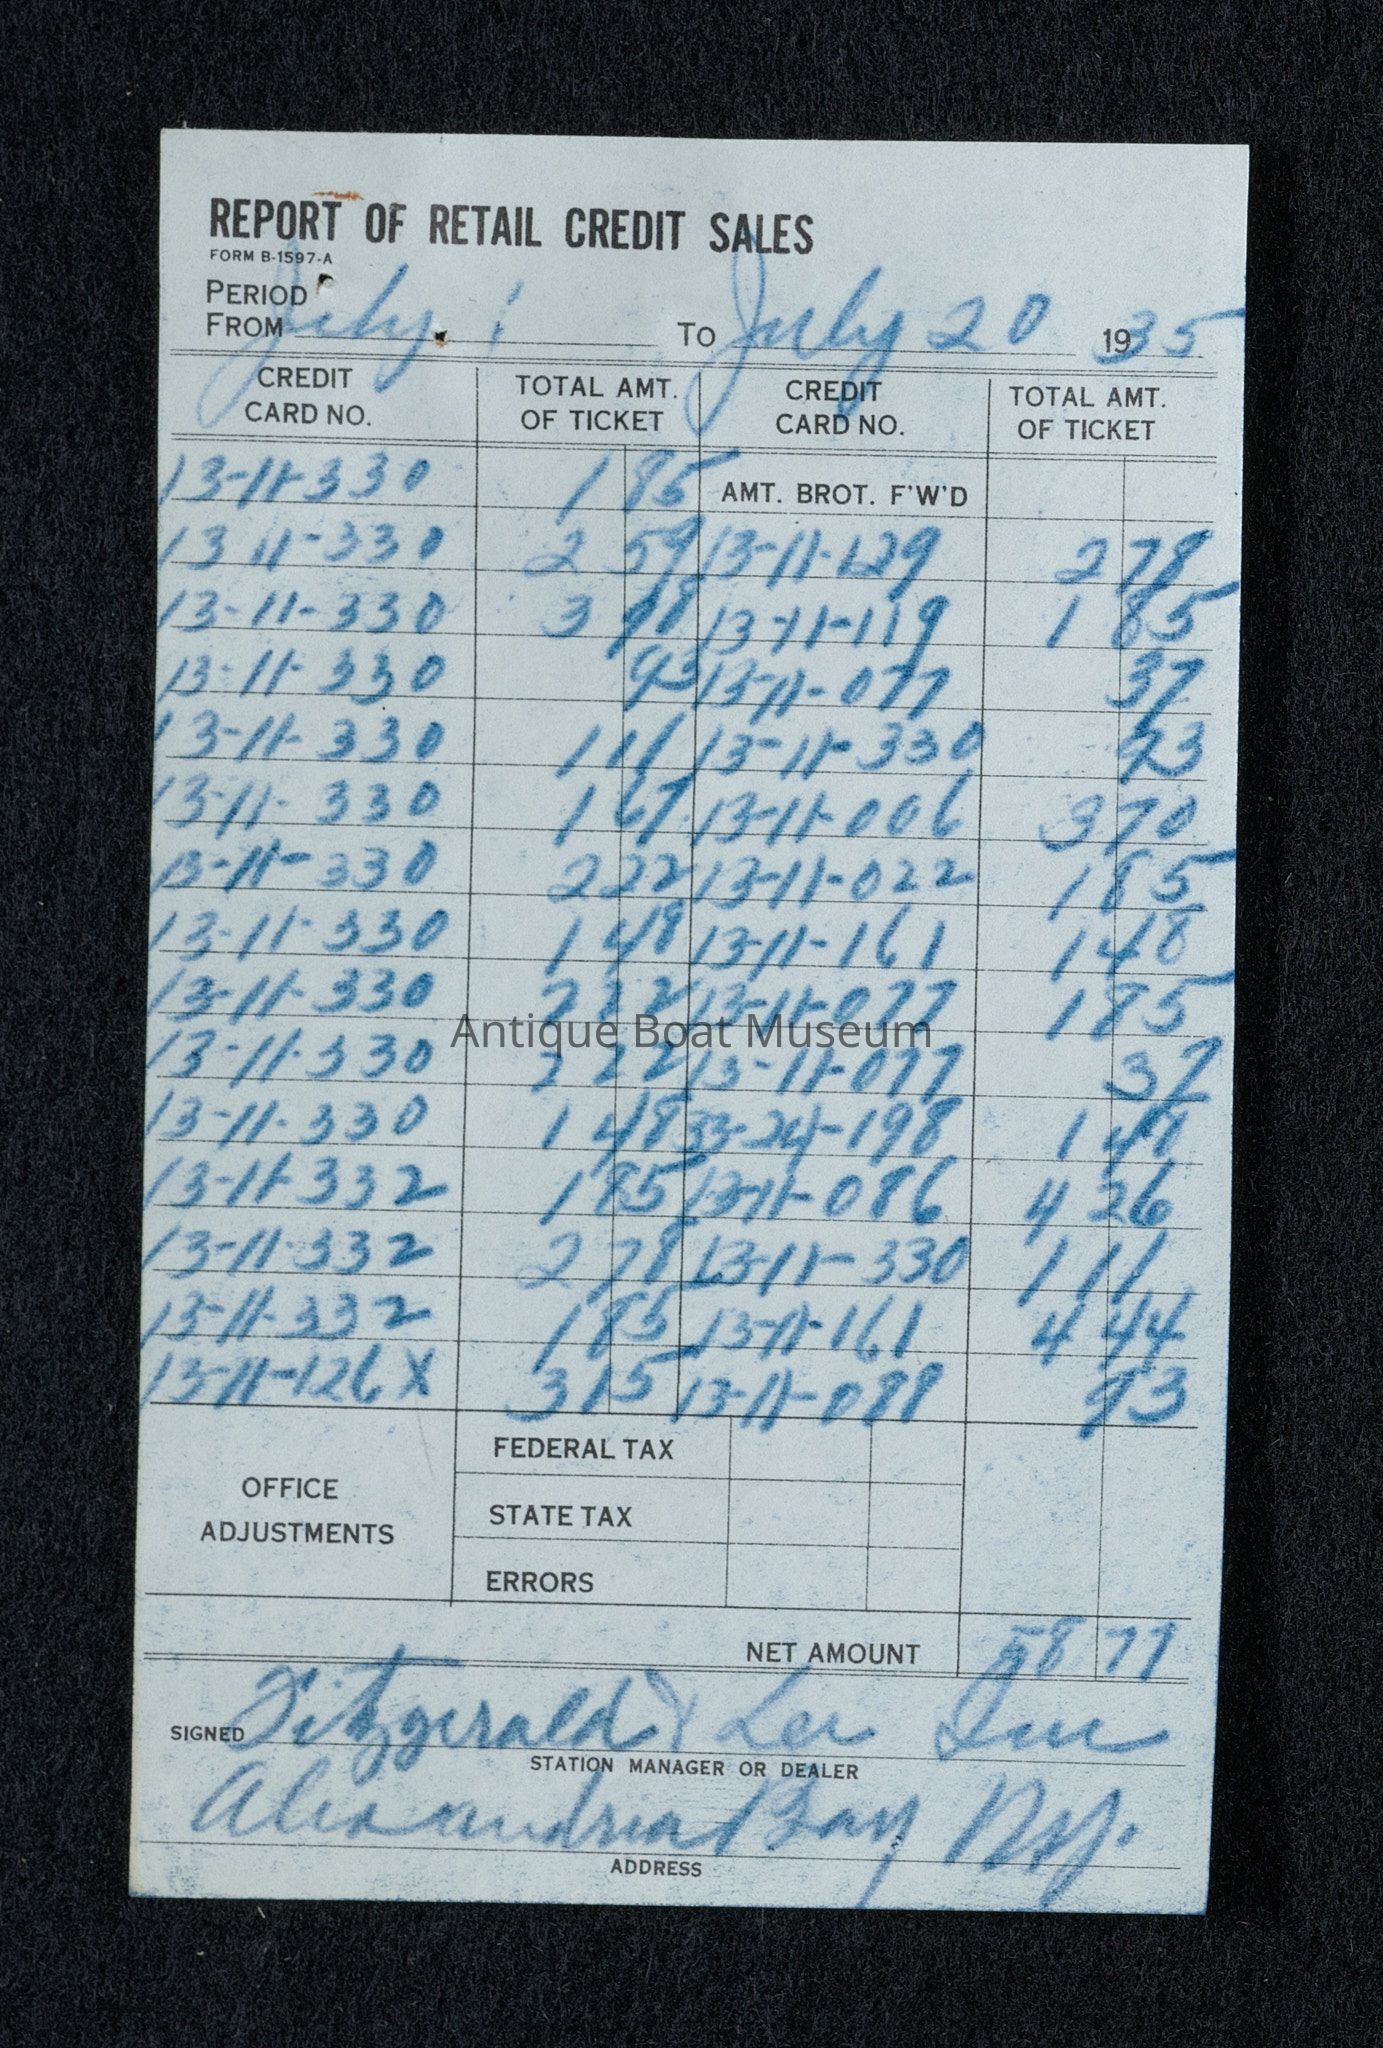 REPORT OF RETAIL CREDIT SALES
FORM B-1597-A
PERIOD
FROM July 1 TO July 20 1935
CREDIT CARD NO. TOTAL AMT. OF TICKET CREDIT CARD NO. TOTAL AMT. OF TICKET
13-11-330 1 85 AMT. BROT. F'W'D
13 11-330 2 59 13-11-129 2 78
13-11-330 3 13-11-119 1 85
13-11-330 93 13-11-077 37
13-11-330 1 11 13-11-330 93
13-11-330 1 67 13-11-006 3 70
13-11-330 2 22 13-11-022 1 85
13-11-330 1 48 13-11-161 1 48
13-11-330 2 22 13-11-077 1 85
Antique Boat Museum
13-11-330 2 22 13-11-077 37
13-11-330 1 48 33-24-198 1
13-11-332 1 85 13-11-086 4 26
13-11-332 2 78 13-11-330 1 11
13-11-332 1 85 13-11-161 4 44
13-11-126 X 3 15 93
OFFICE ADJUSTMENTS
FEDERAL TAX
STATE TAX
ERRORS
NET AMOUNT 58 77
SIGNED Fitzgerald & Lee Inc
STATION MANAGER OR DEALER
Alexandria Bay N.Y.
ADDRESS